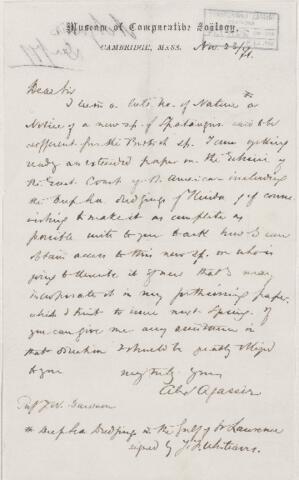 Museum of Comparative Zoölogy,
CAMBRIDGE, MASS. Nov 22/
Dear Sir
I seem a late no. of Nature a
Notice of a new sp. of Spatangus said to be
different for the British sp. I am getting
ready an extended paper on the Echini of
the East Coast of N. America including
the Deep Sea dredgings of Florida & of course
wishing to make it as complete as
possible write to you to ask how I can
obtain access to this new sp. or who is
going to describe it if new that I may
incorporate it in my forthcoming paper
which I hint to issue next Spring. If
you can give me any assistance in
that direction I should be greatly obliged
to you
very truly yours
Alex Agassiz
Prof J. W. Dawson
* Deep Sea Dredgings in the Gulf of St Lawrence
signed by J. F. Whiteaves.